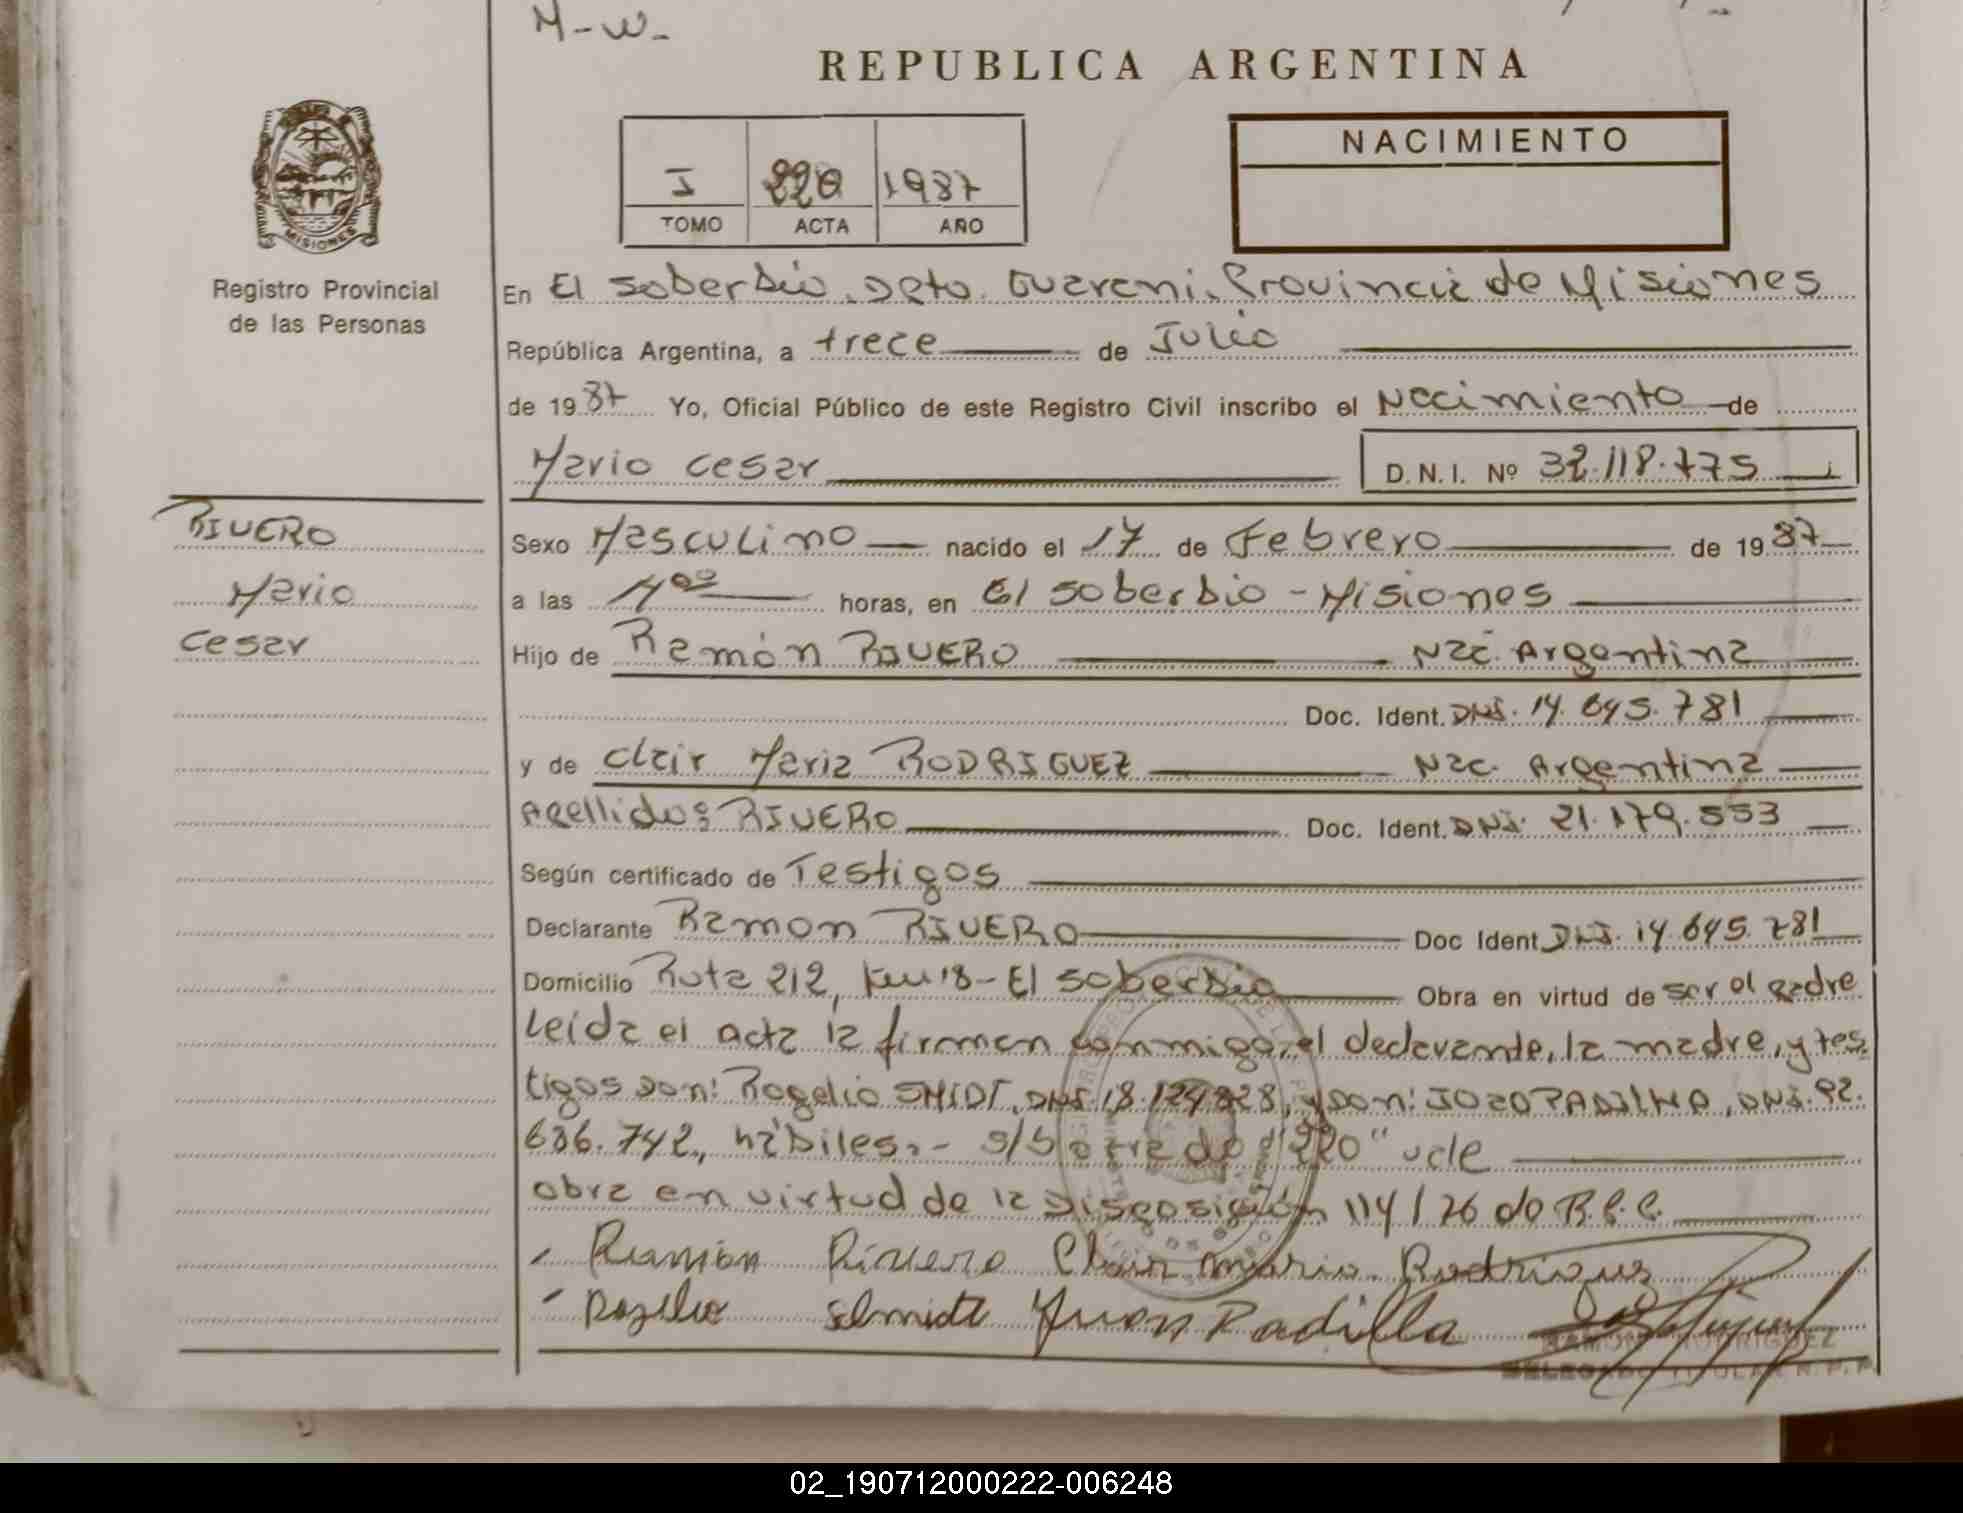 M-W-
REPUBLICA ARGENTINA
I 220 1987
TOMO ACTA AÑO
NACIMIENTO
MISIONES
Registro Provincial
de las Personas
En El Soberbio, Dpto. Guarani, Provincia de Misiones
República Argentina, a trece de Julio
de 1987 Yo, Oficial Público de este Registro Civil inscribo el Nacimiento de
Mario Cesar D.N.I. Nº 32.118.775
RIVERO
Mario
Cesar
Sexo Masculino nacido el 17 de Febrero de 1987
a las 4⁰⁰ horas, en El Soberbio - Misiones
Hijo de Ramón RIVERO Nac. Argentina
Doc. Ident. DNI. 14.645.781
y de Clair Maria RODRIGUEZ Nac. Argentina
Apellido: RIVERO Doc. Ident. DNI. 21.179.553
Según certificado de Testigos
Declarante Ramon RIVERO Doc Ident DNI. 14.645.781
Domicilio Ruta 212, Km 18 - El Soberbio Obra en virtud de ser el padre
Leida el acta la firman conmigo, el declarante, la madre, y tes-
tigos don: Rogelio SMIDT, DNI. 18.124.828, y don: JOAO PADILHA, DNI. 92.
636.742, hábiles.- s/borrado "220" vale
obra en virtud de la Disposición 114/76 de R.P.P.
Ramón Rivero Clair Maria Rodriguez
Rogelio Schmidt Juan Padilla
RAMON RODRIGUEZ
DELEGADO TITULAR R.P.P.
02_190712000222-006248